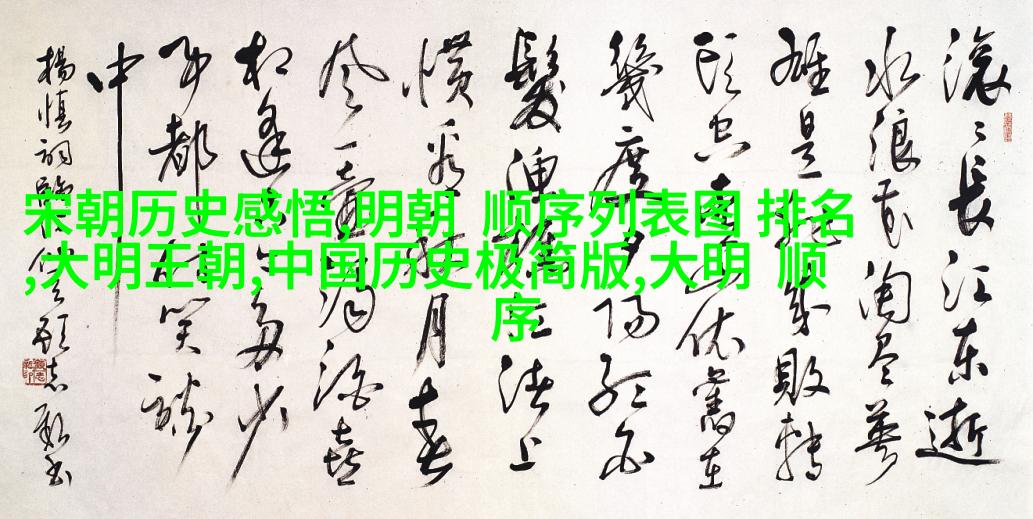 宋朝历史感悟,明朝 顺序列表图 排名
,大明王朝,中国历史极简版,大明 顺
序
滚〻長江东逝
水浪花淘尽英
雄是非成敗轉
頭空青山依舊在
幾度夕阳红白
髮渔樵江渚上
慣看秋月春
风一壶濁酒喜
相逢古今多少
事都付笑談
中
楊慎词臨江仙